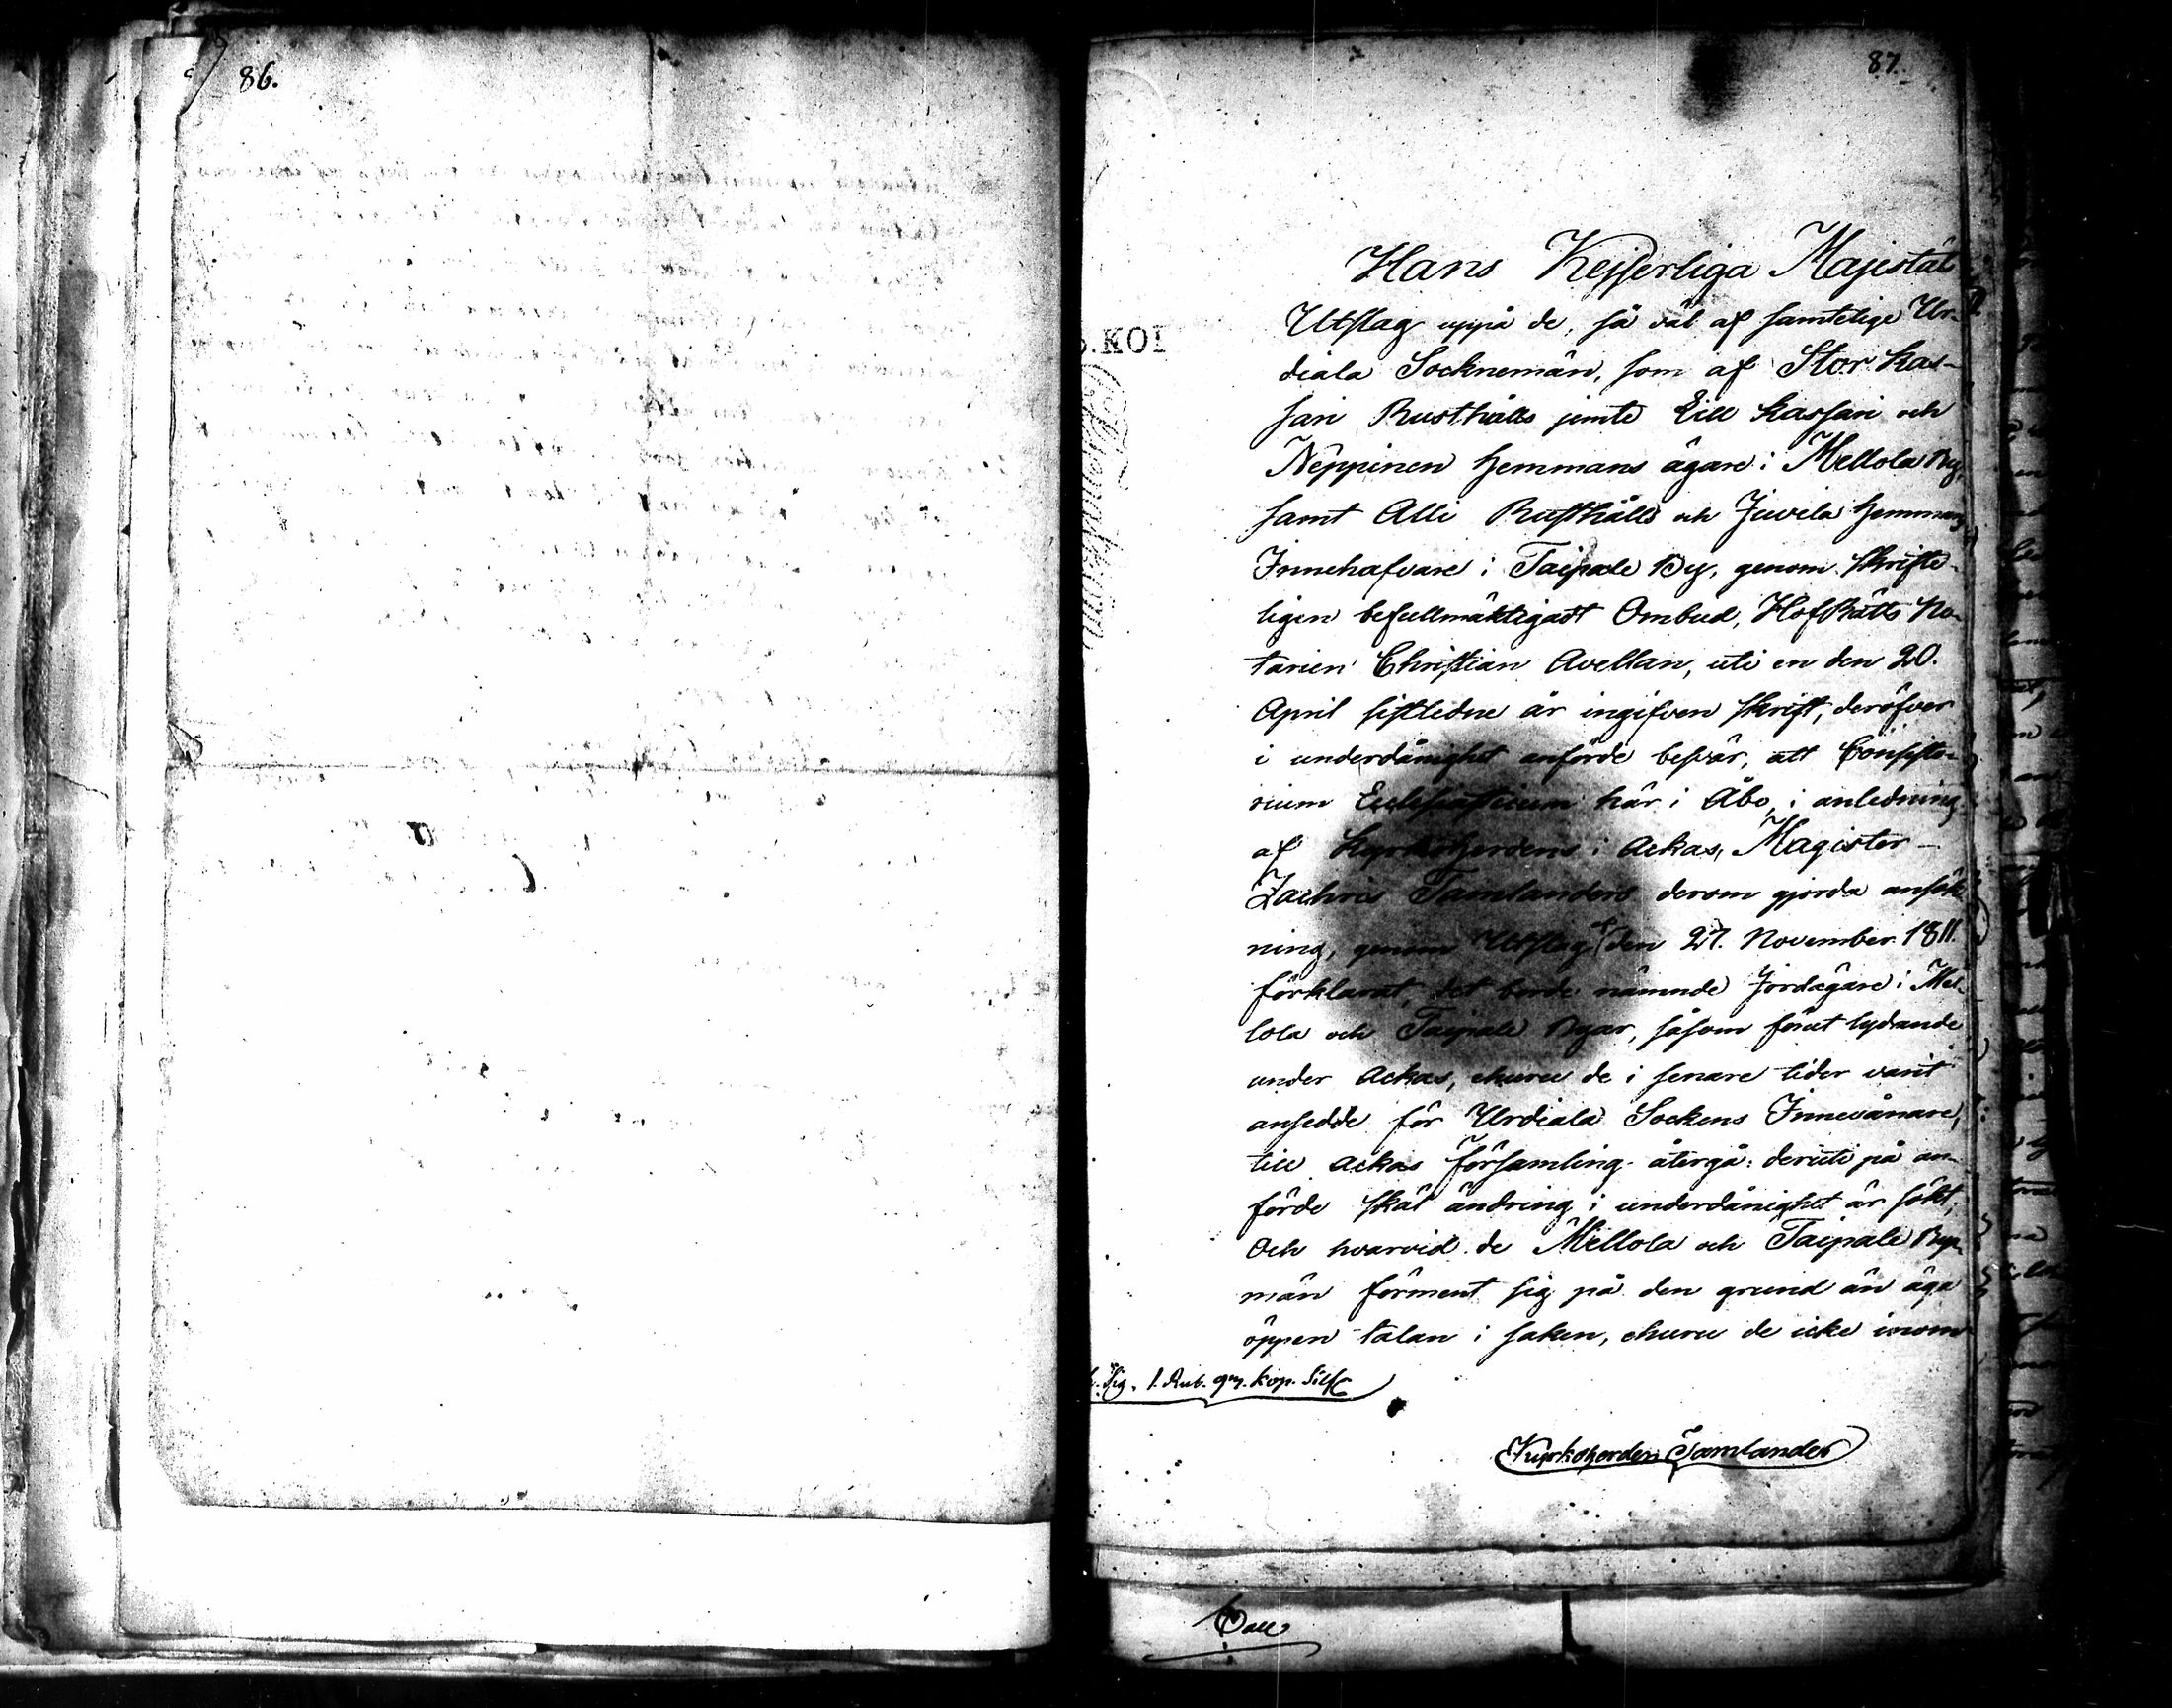 86.
87.
Hans Kejserliga Majestäts
Utslag uppå de, så väl af samtelige Ur-
diala Socknemän, som af Stor Kas-
sari Rusthålls jemte Lill Kassari och
Neppinen hemmans ägare i Mellola By,
samt Alli Rusthålls och Juvela hemmans
Innehafvare i Taipale By, genom skrifte-
ligen befullmäktigadt Ombud, HofRätts No-
tarien Christian Avellan, uti en den 20.
April sistledne år ingifven skrift, deröfver
i underdånighet anförde besvär, att Consisto-
rium Ecclesiasticum här i Åbo, i anledning
af Kyrkoherdens i Ackas, Magister
Zachris Tamlanders derom gjorda ansök-
ning, genom Utslag af den 27. November 1811.
förklarat, det borde nämnde Jordägare i Mel-
lola och Taipale Byar, såsom förut lydande
under Ackas, ehuru de i senare tider varit
ansedde för Urdiala Sockens Innevånare,
till Ackas församling återgå: deruti på an-
förde skäl ändring i underdånighet är sökt;
Och hvarvid de Mellola och Taipale By-
män förment sig på den grund än äga
öppen talan i saken, ehuru de icke inom
Sig. 1. Rub. kop. Silf
Kyrkoherden Tamlander